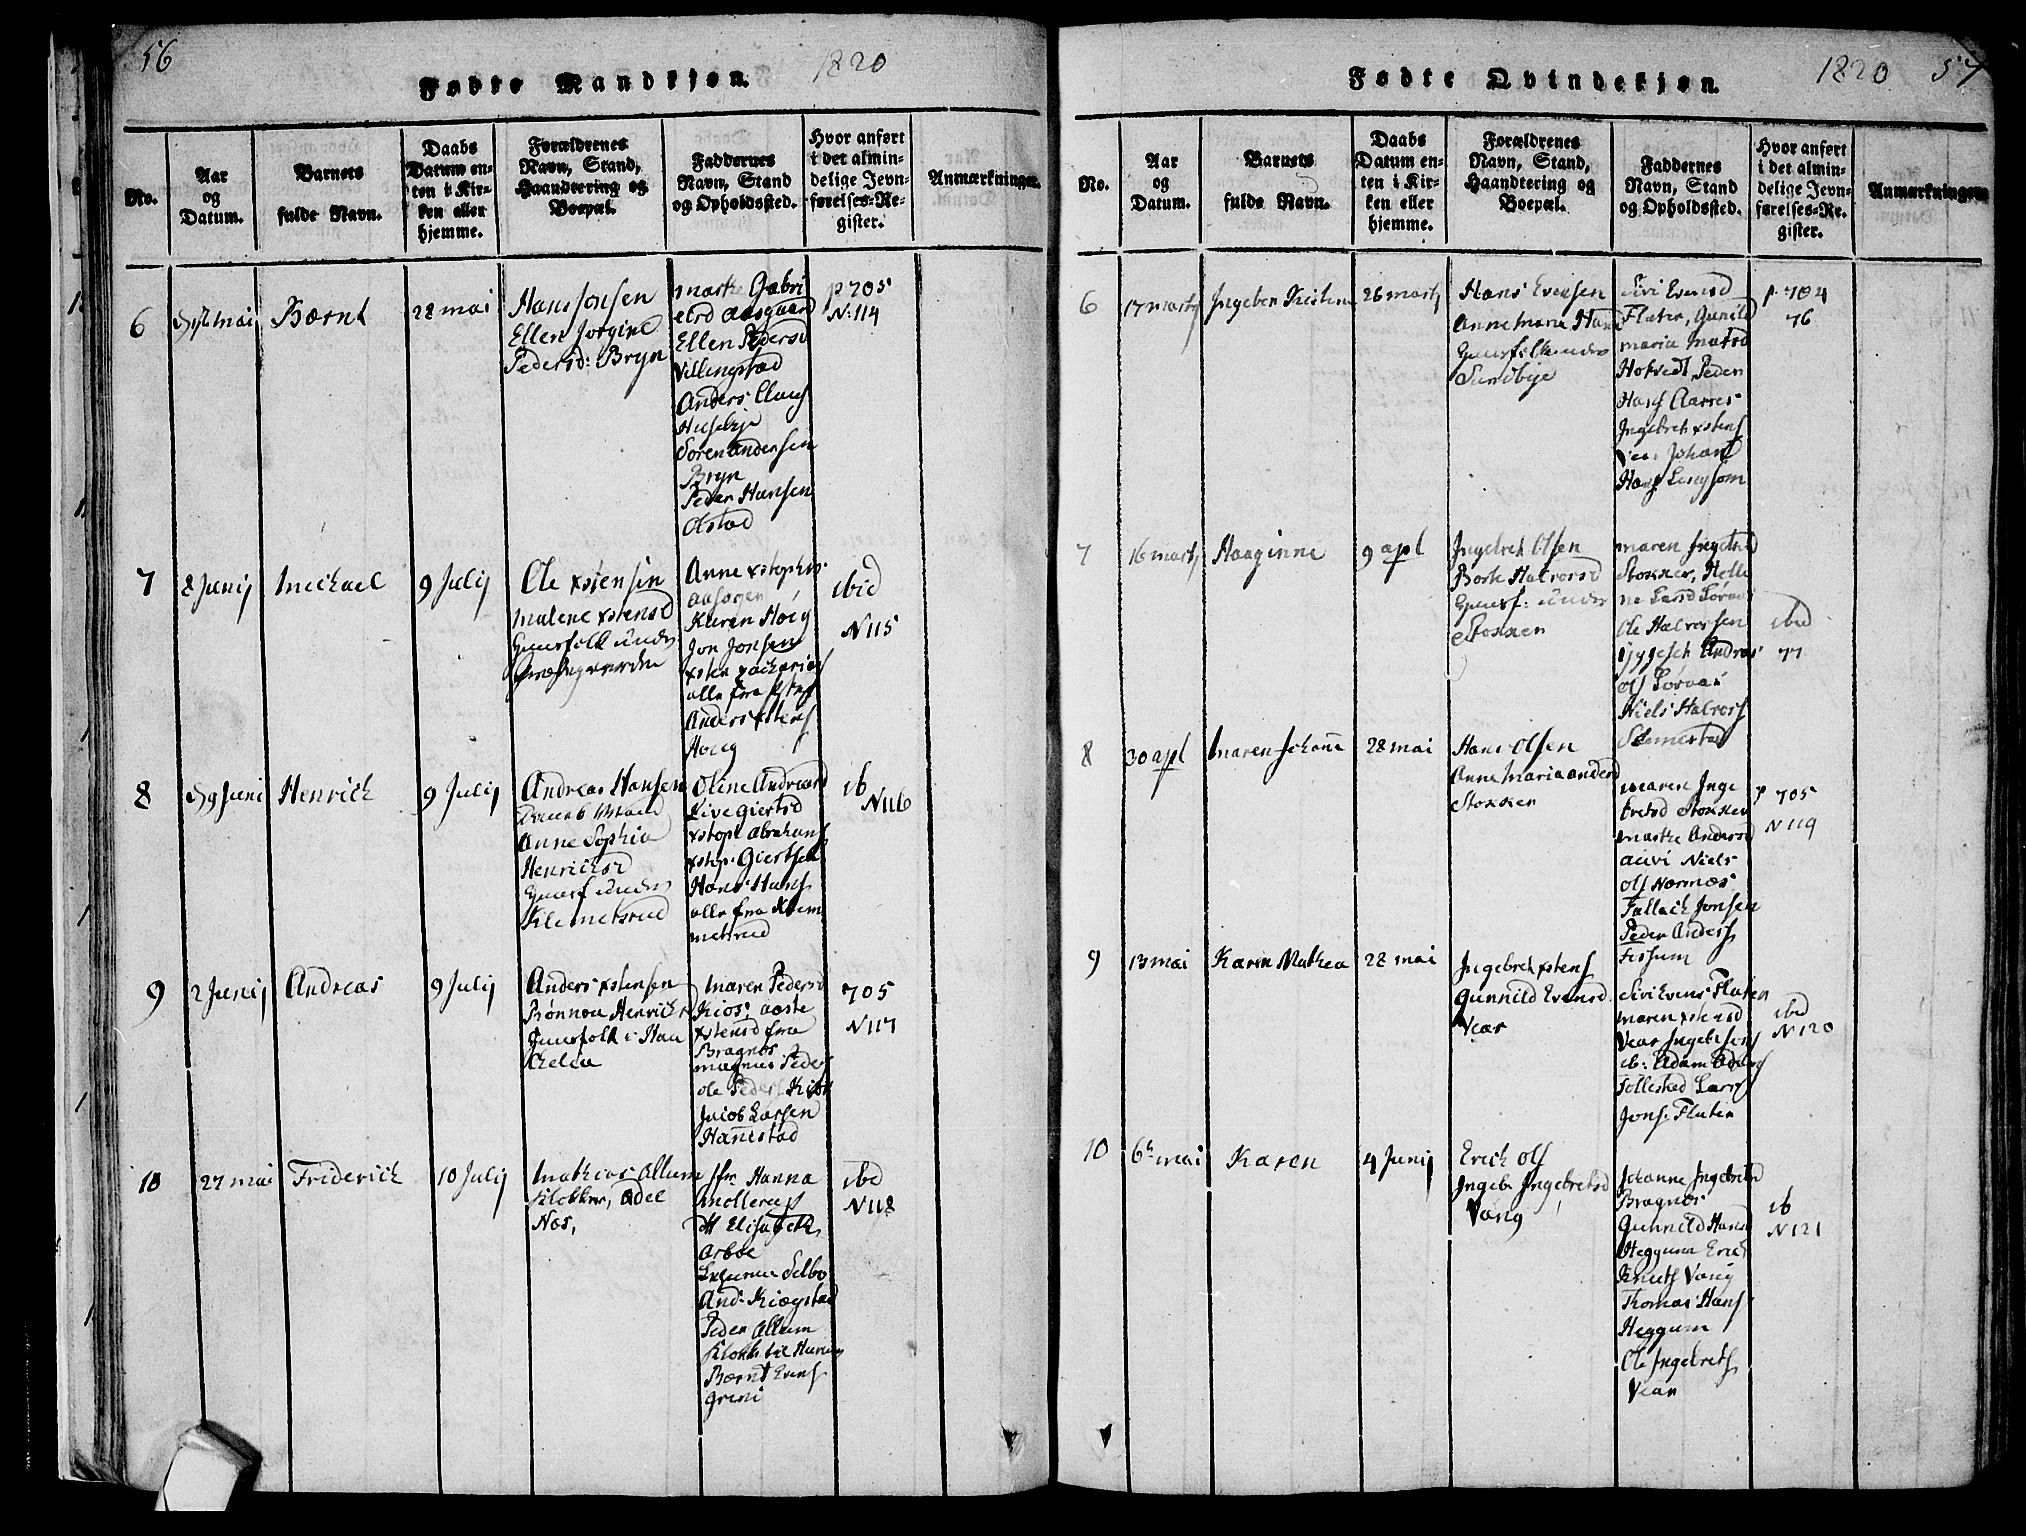 56
1820
Fødte Mandkjøn.
No.
Aar
og
Datum.
Barnets
fulde Navn.
Daabs
Datum en-
ten i Kir-
ken eller
hjemme.
Forældrenes
Navn, Stand,
Haandtering og
Boepæl.
Faddernes
Navn, Stand
og Opholdssted.
Hvor anført
i det almin-
delige Jevn-
førelses-Re-
gister.
Anmærkninger.
6
mai
Bærnt
28 mai
Hans Jonsen
Ellen Jorgine
Pedersd: Bryn
marthe Gabri
elsd aasgaard
Ellen Pedersd
Villingstad
Anders Clausf
Huseby
Soren andersen
Bryn
Peder Hansen
Olstad
p 705
N: 114
7
8 Junij
Michael
9 Julij
Ole xstensen
malene xstensd
Huusfolk under
Anne xstophers
Karen Hoeg
Jon Jonsen
xsten zacharias
alle fra
Anders xstens
Hoeg
ibid
N 115
8
9 Juni
Henrich
9 Julij
Andreas Hansen
Anne Sophia
Henrichsd
Huusf under
Klemetsrud
Oline Andreasd
Live giertsd
xstopf abrahams
xstop. Giertsen
Hans Hansf
alle fra Klem
metsrud
ib
N 116
9
2 Junij
Andreas
9 Julij
Anders xstensen
Rønnou Henrichs
Huusfolk i Haa
kelia
maren Pedersd
Kios: aaste
xstensd fra
Bragnæs
magnus Peders
ole Peders Kios
Jacob Larsen
Hannestad
705
N 117
10
27 mai
Friderich
10 Julij
mathias Allum
Klokker, Adel
Næs,
jfr. Hanna
Mollerup
M Elisabeth
Arboe
Selbo
And: Kiøgstad
Peder Allum
Klokk til Hurum
Bærnt Evens
greni
ibd
N 118
Fødte Qvindekjøn.
1820
57
No.
Aar
og
Datum.
Barnets
fulde Navn.
Daabs
Datum en-
ten i Kir-
ken eller
hjemme.
Forældrenes
Navn, Stand,
Haandtering og
Boepæl.
Faddernes
Navn, Stand
og Opholdssted.
Hvor anført
i det almin-
delige Jevn-
førelses-Re-
gister.
Anmærkninger
6
17 martj
Ingebor Kirstine
26 martj
Hans Evensen
Anne Marie Hansd
Huusfolk under
Sundbye
Sivi Evensd
Fluten, Gunild
maria Matsd
Hotvedt, Peder
Hansf Aarres
Ingebret xstens
Vear Johan
Hansf
p 704
76
7
16 martj
Haaginne
9 apl
Ingebret Olsen
Borte Halvorsd
Huusf: under
Stokken
maren Ingebretsd
Stokker, Helle
ne Larsd Sorvas
Ole Halvorsen
Andreas
olf Sorvas
Niels Halvors
Semestad
ibid
77
8
30 apl
Maren Johanne
28 mai
Hans Olsen
Anne Maria anders
Stokken
maren Inge
bretsd Stokken
marthe Andersd
auvi Niels
olf Nærnæs
Fallach Jonsen
Peder Andersf
Fossum
p 705
N 119
9
13 mai
Karen Mathea
28 mai
Ingebret xstensf
Gunnild Evensd.
Vear
Sivi Evens Fluten
maren xstensd
Vear Ingebr
ib: Adam
Tollested Lars
Jons: Fluten
ibid
N 120
10
6th mai
Karen
4 Junij
Erich Olf
Ingebr Ingebretsd
Vang
Johanne Ingebretsd
Bragnæs
Gunnild Hansd
Heggum Erich
Knuts Vang
Thomas Hansf
Heggum
Ole Ingebretsf
Vear
ib
N 121